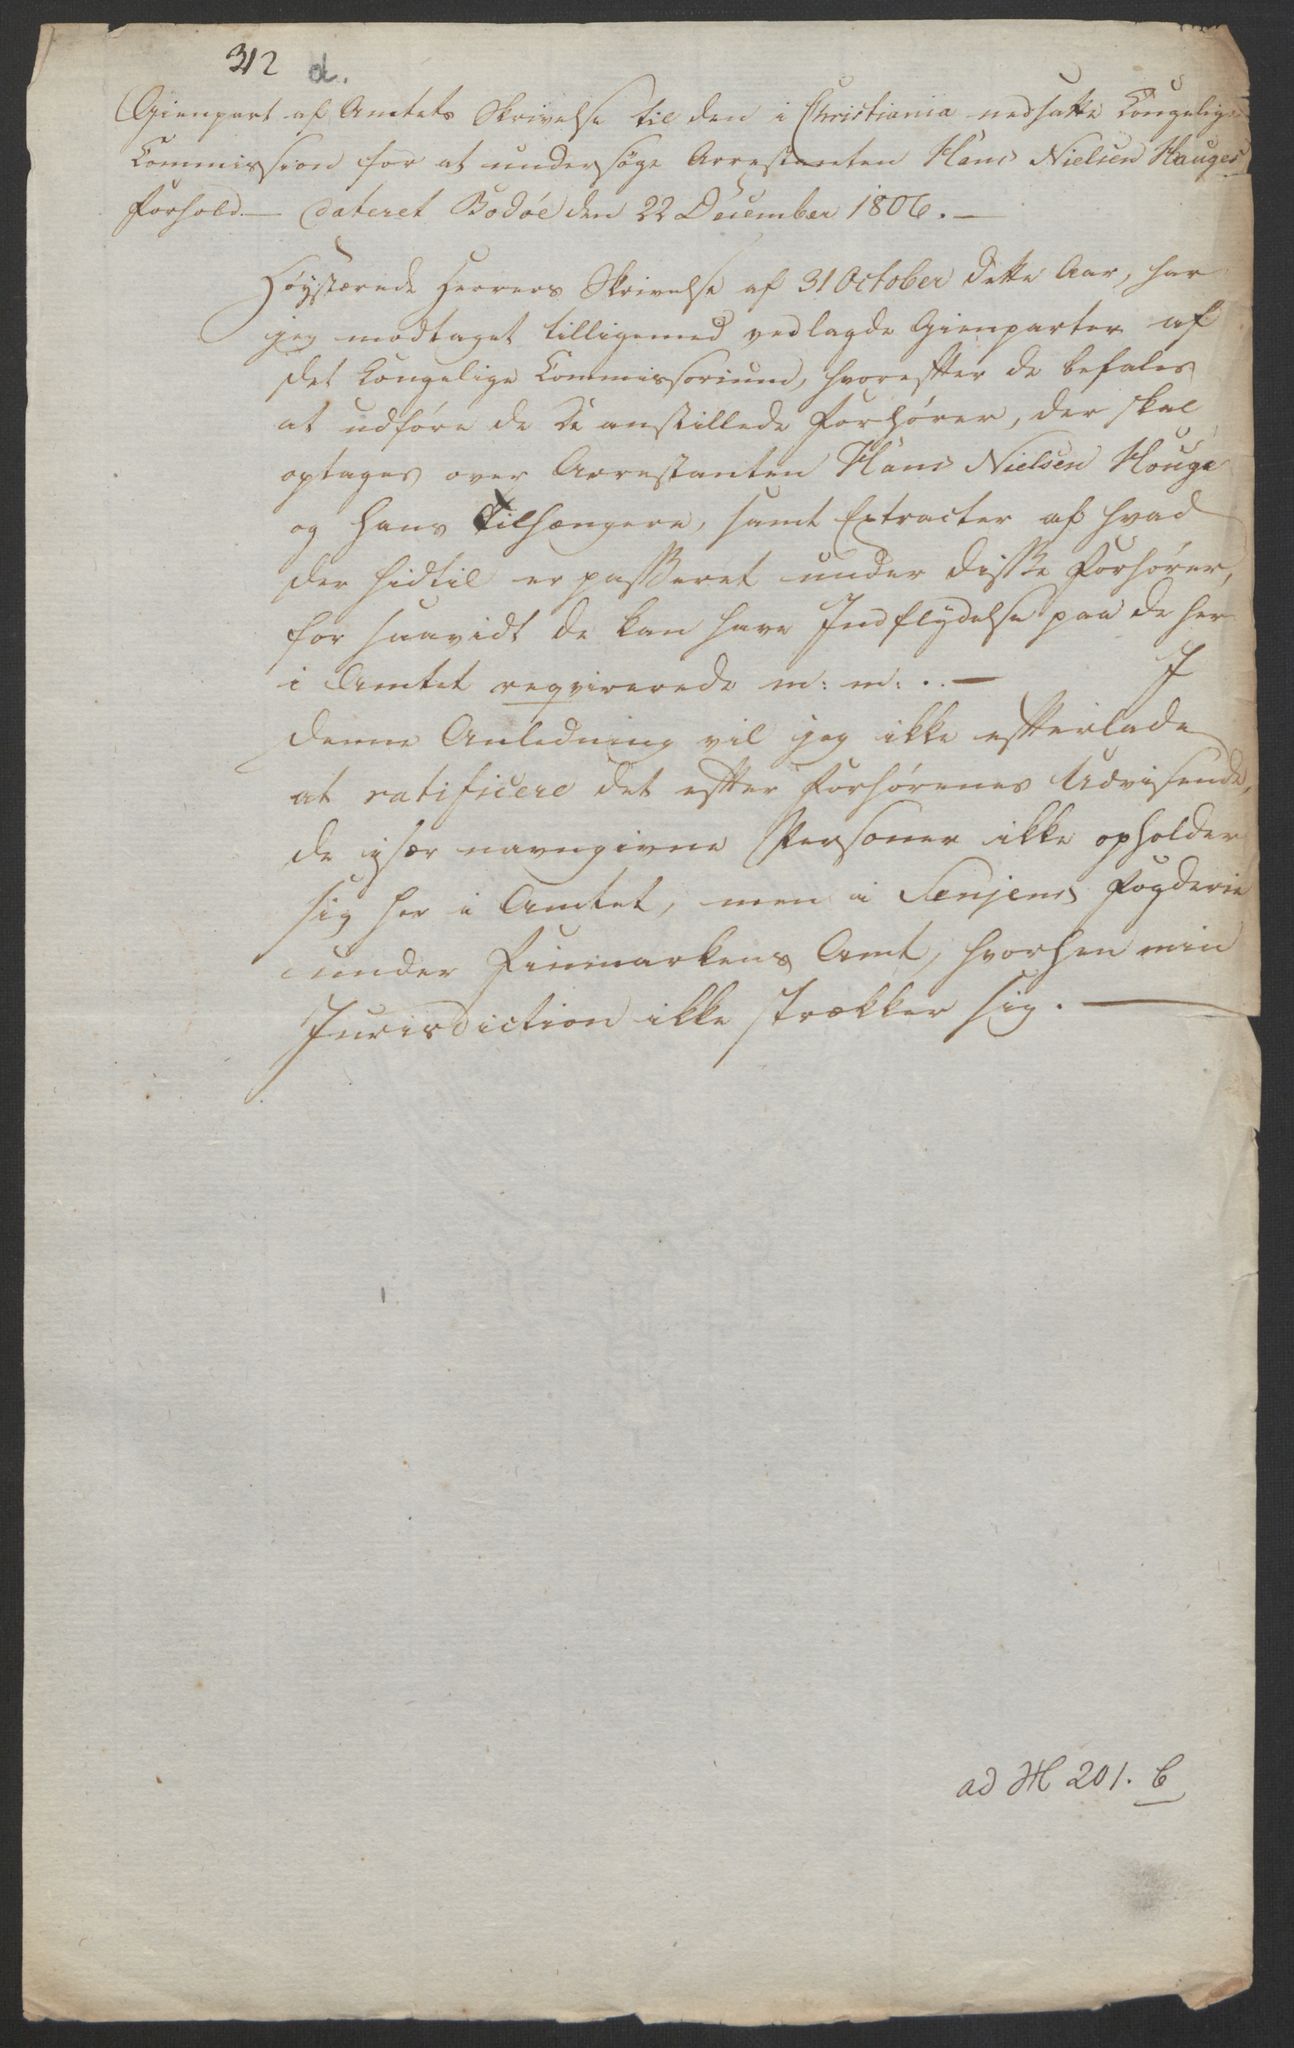 312 d.
Gienpart af Amtets Skrivelse til den i Christiania nedsatte Kongelige
Commission for at undersöge Arrestanten Hans Nielsen Hauges
Forhold. — dateret Bodöe den 22 December 1806. —
Höystærede Herrers Skrivelse af 31 October dette Aar, har
jeg modtaget tilligemed vedlagde Gienparter af
det Kongelige Commissorium, hvorefter de befales
at udföre de anstillede Forhörer, der skal
optages over Arrestanten Hans Nielsen Houge
og hans Tilhængere, samt Extracter af hvad
der hidtil er passeret under disse Forhörer,
for saavidt de kan have Indflydelse paa de her
i Amtet reqvirerede m: m: . . — I
denne Anledning vil jeg ikke efterlade
at ratificere det efter Forhörenes Udvisende,
de især navngivne Personer ikke opholder
sig her i Amtet, men i Senjens Fogderie
under Finmarkens Amt, hvorhen min
Jurisdiction ikke strækker sig. —
ad M 201. b